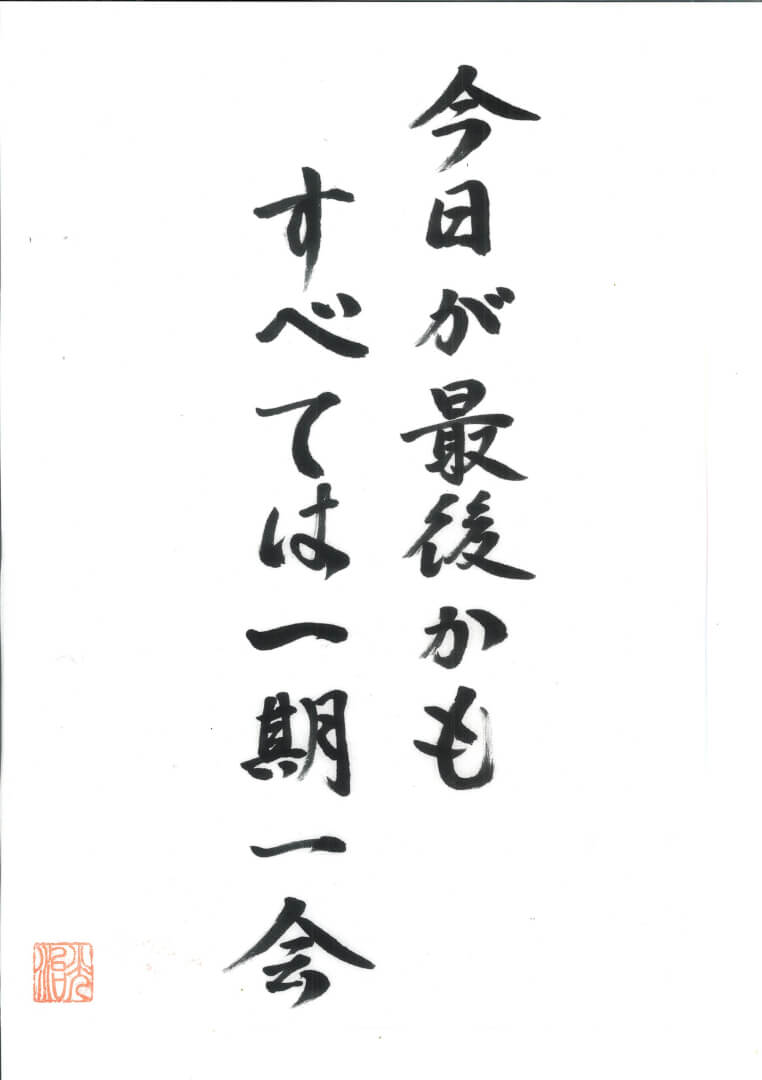 今日が最後かも
すべては一期一会